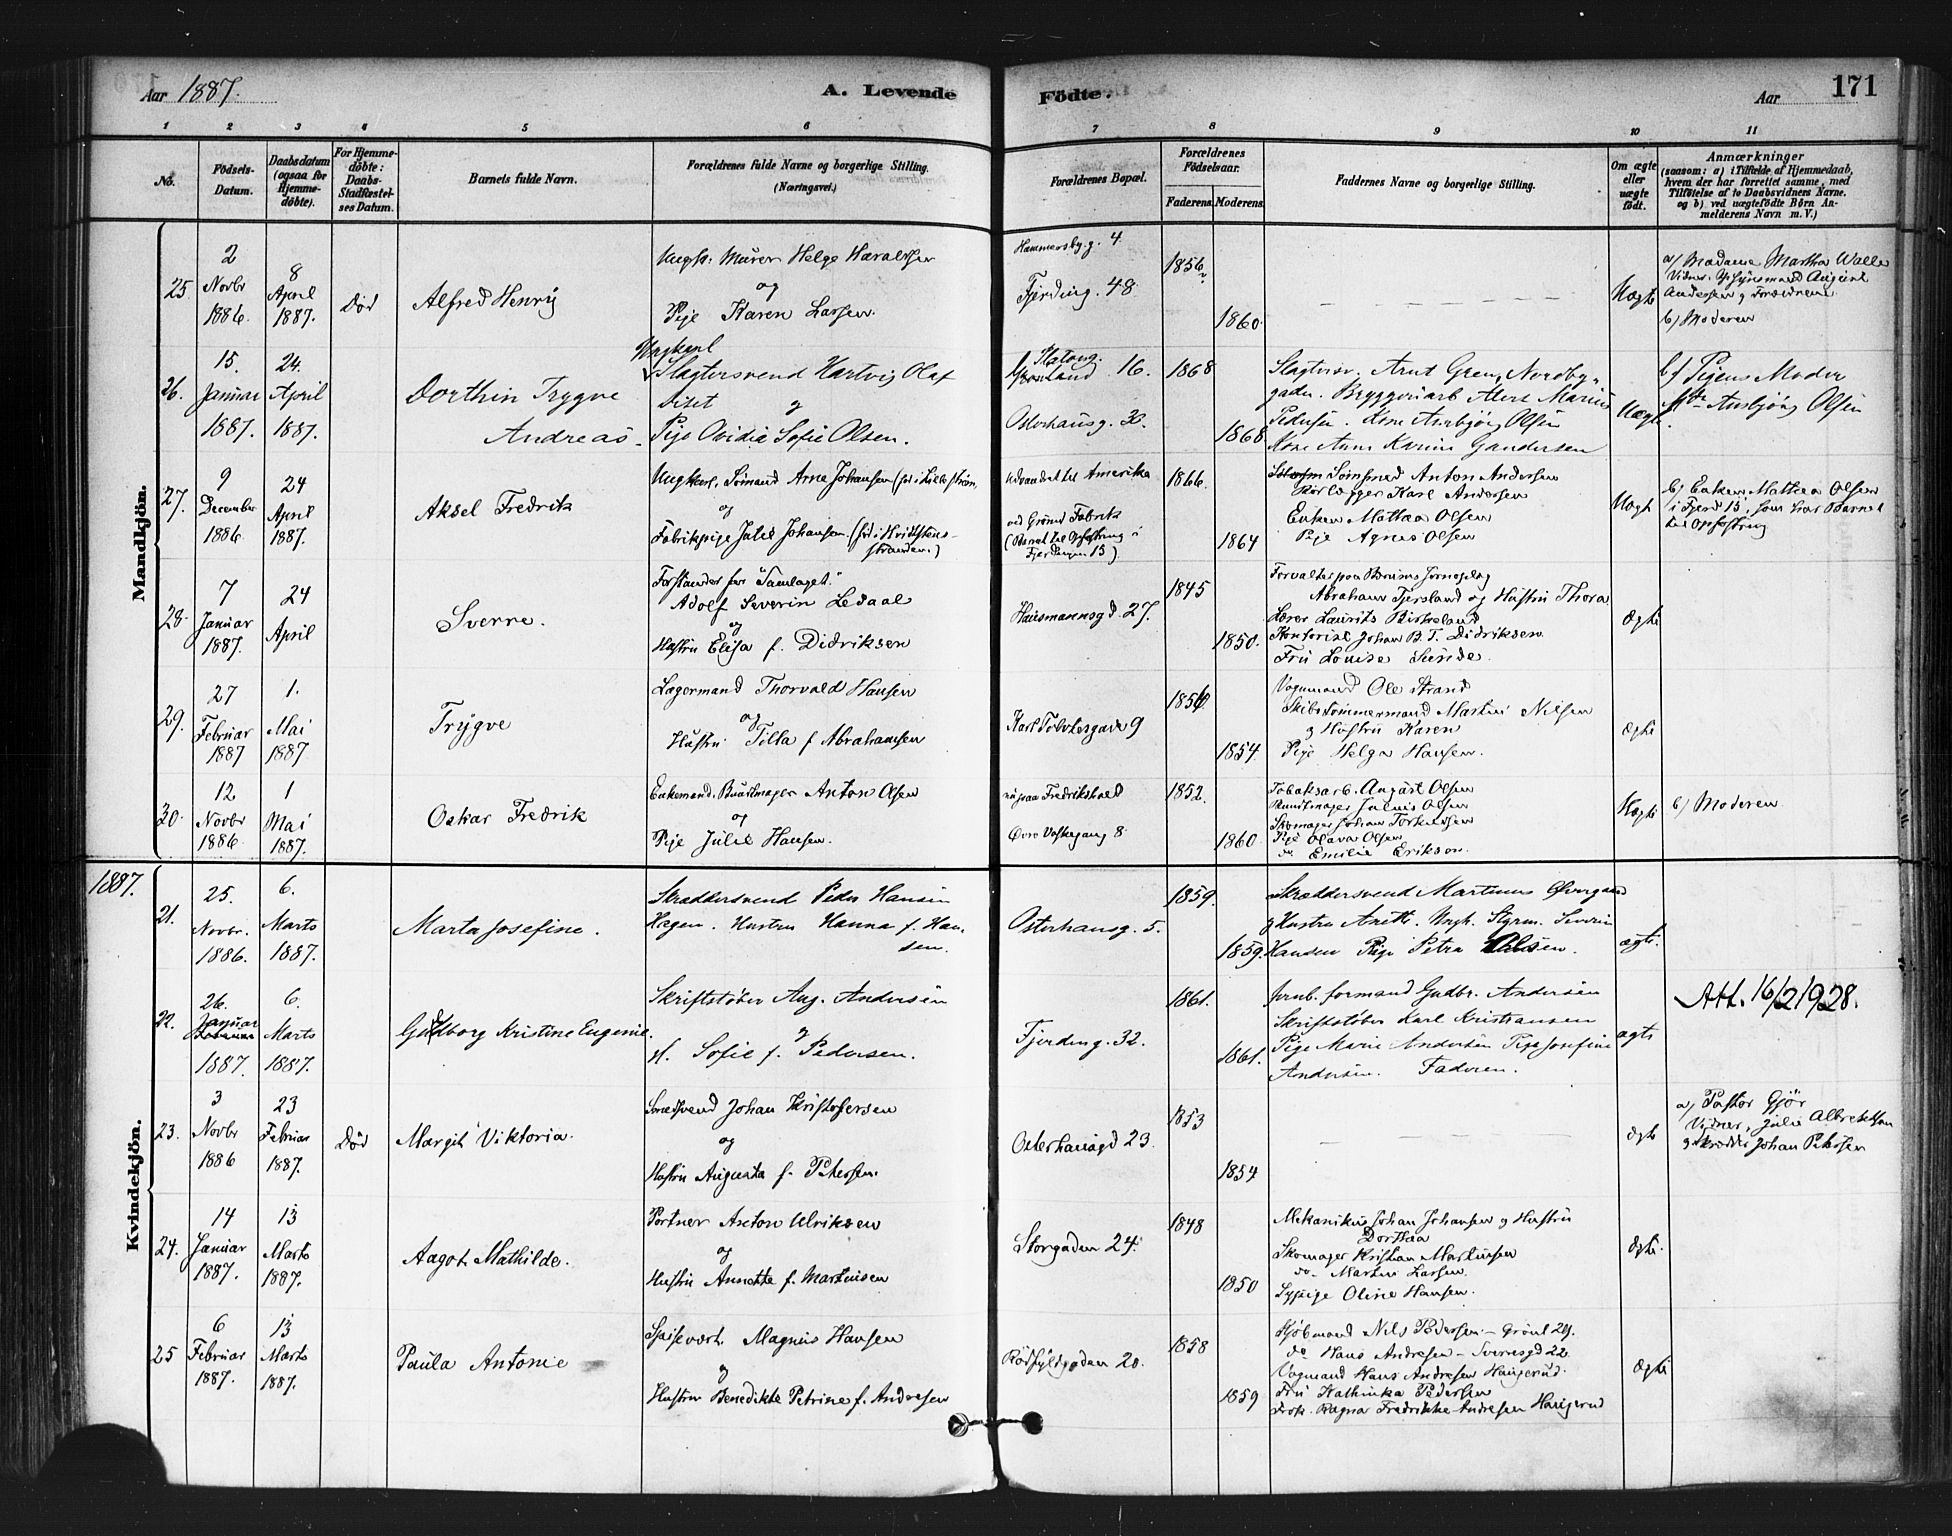 Aar 1887.
A. Levende
Födte.
Aar
171
1
2
3
4
5
6
7
8
9
10
11
No.
Födsels-
Datum.
Daabsdatum
(ogsaa for
Hjemme-
döbte).
For Hjemme-
döbte:
Daabs-
Stadfæstel-
ses Datum.
Barnets fulde Navn.
Forældrenes fulde Navne og borgerlige Stilling.
(Næringsvei.)
Forældrenes Bopæl.
Forældrenes
Födselsaar.
Faderens.
Moderens.
Faddernes Navne og borgerlige Stilling.
Om ægte
eller
uægte
födt.
Anmærkninger
(saasom: a) i Tilfælde af Hjemmedaab,
hvem der har forrettet samme, med
Tilföielse af to Daabsvidners Navne.
og b) ved uægtefödte Börn An-
melderens Navn m. V.)
Mandkjön.
25.
2
Novbr
1886.
8
April
1887.
Död
Alfred Henry
Ungk: Murer Helge Haraldsen
og
Pige Karen Larsen.
Hammersbg.g. 4
Fjerding. 48
1856
1860.
Uægte
a) Madame Martha Walle
Andersen g Forældrene
b) Moderen
26.
15.
Januar
1887.
24.
April
1887.
Dorthin Trygve
Andreas.
Ungkarl
Slagtersvend Hartvig Olaf
og
Pige Ovidia Sofie Olsen.
16.
Osterhausg. 30.
1868
1868
Pedersen.
Uægte
b) Pigens Moder
Olsen
27.
9
December
1886
24
April
1887.
Aksel Fredrik
Ungkarl. Sömand Arne Johansen (föd i Lilleström)
og
Fabrikpige Julie Johansen (föd i Hvidtsten-
stranden.)
udvandret til Amerika
ved Grönv. Fabrik
(Barnet til Opfostring i
Fjerdingen 15)
1866.
1864
Sömand Anton Andersen
Rörlægger Karl Andersen
Enken Mathea Olsen
Pige Agnes Olsen
Uægte
b) Enken Mathea Olsen
i Fjerd 15, som har Barnet
til Opfostring
28.
7
Januar
1887.
24
April
Sverre.
Forstander for "Samlaget."
Adolf Severin Ledaal
og
Hustru Elisa f. Didriksen
Hausmannsgd 27.
1845
1850.
Abraham Tjersland og Hustru Thora
Lærer Laurits Birkeland
Kontorist Johan B. T. Didriksen
Fru Louise Sunde.
Ægte
29.
27
Februar
1887
1.
Mai
1887.
Trygve
Lagermand Thorvald Hansen
og
Hustru Tilla f Abrahamsen
9
1856
1854.
Vognmand Ole Strand
Skibstömmermand Martin Nilsen
g Hustru Karen
Pige Helga Hansen.
Ægte
30.
12
Novbr
1886.
1
Mai
1887.
Oskar Fredrik
Enkemand. Buntmager Anton Olsen
og
Pige Julie Hansen.
nu paa Fredrikshald
Övre Voldgang 8
1852.
1860.
Tobaksarb. August Olsen
Buntmager Julius Olsen
Skomager Johan Torkildsen
Pige Olava Olsen
do Emilie Erikson.
Uægte
b) Moderen
Kvindekjön.
1887.
21.
25.
Novbr.
1886.
6.
Marts
1887.
Marta Josefine.
Skræddersvend Peder Hansen
Hagen. Hustru Hanna f. Han-
sen.
Osterhausg. 5.
1859.
1859.
Skræddersvend Martinus Övergaard
g Hustru Anette. Ungk. Styrm. Severin
Hansen Pige Petra Olsen.
ægte.
22.
26.
Januar
1887.
6.
Marts
1887.
Gudborg Kristine Eugenie.
Skriftstöber Aug. Andersen
og
H. Sofie f. Pedersen.
Fjerding. 32.
1861.
1861.
Jernb. formand Gudbr. Andersen
Skriftstöber Karl Kristiansen
Pige Marie Andersen Pige Josefine
Andersen. Faderen.
ægte
Att. 16/2 1928.
23.
3
Novbr
1886
23
Februar
1887.
Död
Margit Viktoria.
Smedsvend Johan Kristofersen
og
Hustru Augusta f. Petersen.
Osterhausgd 23.
1853
1854
Ægte
a) Pastor Gjör
Vidner, Julie Albrektsen
g Skrædder Johan Petersen
24.
14
Januar
1887.
13
Marts
1887.
Aagot Mathilde.
Portner Anton Ulriksen
og
Hustru Annette f. Martinsen
Storgaden 24.
1848
1850
Mekanikus Johan Johansen g Hustru
Dorthea
Skomager Kristian Martinsen
do. Martin Larsen.
Sypige Oline Hansen.
Ægte.
25
6
Februar
1887.
13
Marts
1887.
Paula Antonie
Spisevært. Magnus Hansen
og
Hustru Benedikte Petrine f. Andresen
Rödfyldgaden 20.
1858
1859
Kjöbmand Nils Pedersen - Grönl 29.
do Hans Andresen - Sverresgd 22
Vognmand Hans Andresen Haugerud.
Fru Kathinka Pedersen
Frök. Ragna Fredrikke Andresen Haugerud
Ægte